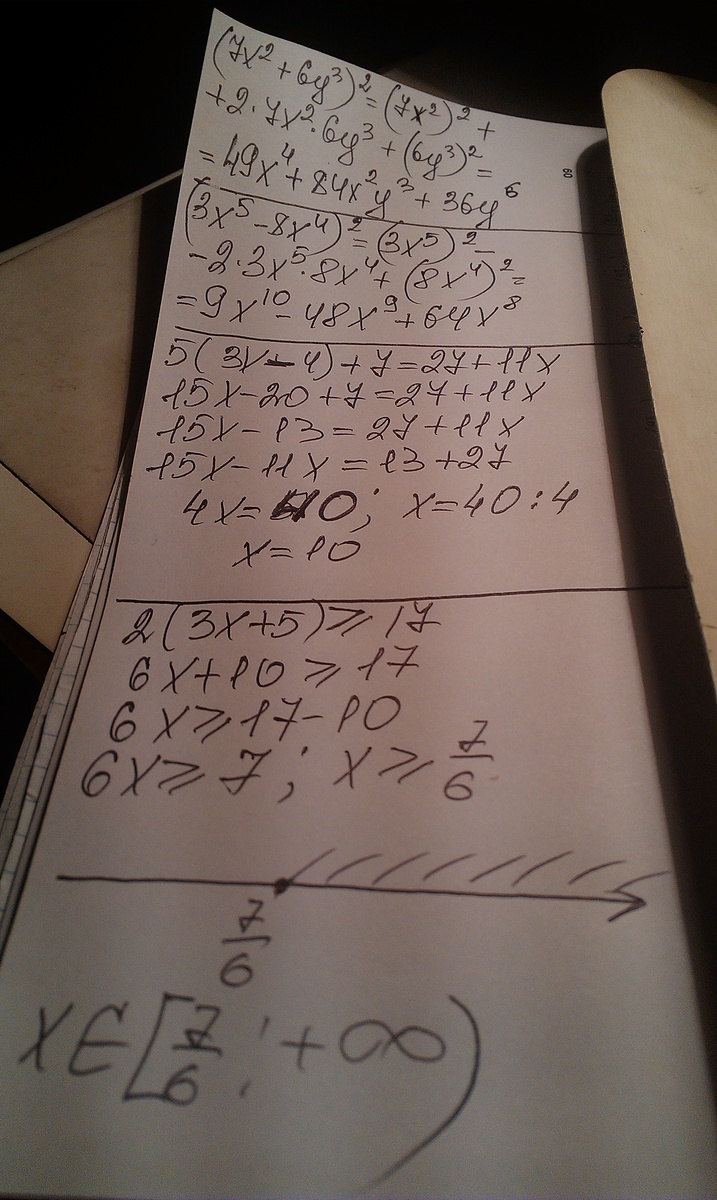 (7x² + 6y³)² = (7x²)² +
+ 2 · 7x² · 6y³ + (6y³)² =
= 49x⁴ + 84x²y³ + 36y⁶
(3x⁵ - 8x⁴)² = (3x⁵)² -
- 2 · 3x⁵ · 8x⁴ + (8x⁴)² =
= 9x¹⁰ - 48x⁹ + 64x⁸
5(3x - 4) + 7 = 27 + 11x
15x - 20 + 7 = 27 + 11x
15x - 13 = 27 + 11x
15x - 11x = 13 + 27
4x = 40; x = 40 : 4
x = 10
2(3x + 5) ⩾ 17
6x + 10 ⩾ 17
6x ⩾ 17 - 10
6x ⩾ 7; x ⩾ 7/6
7/6
x ∈ [7/6; +∞)